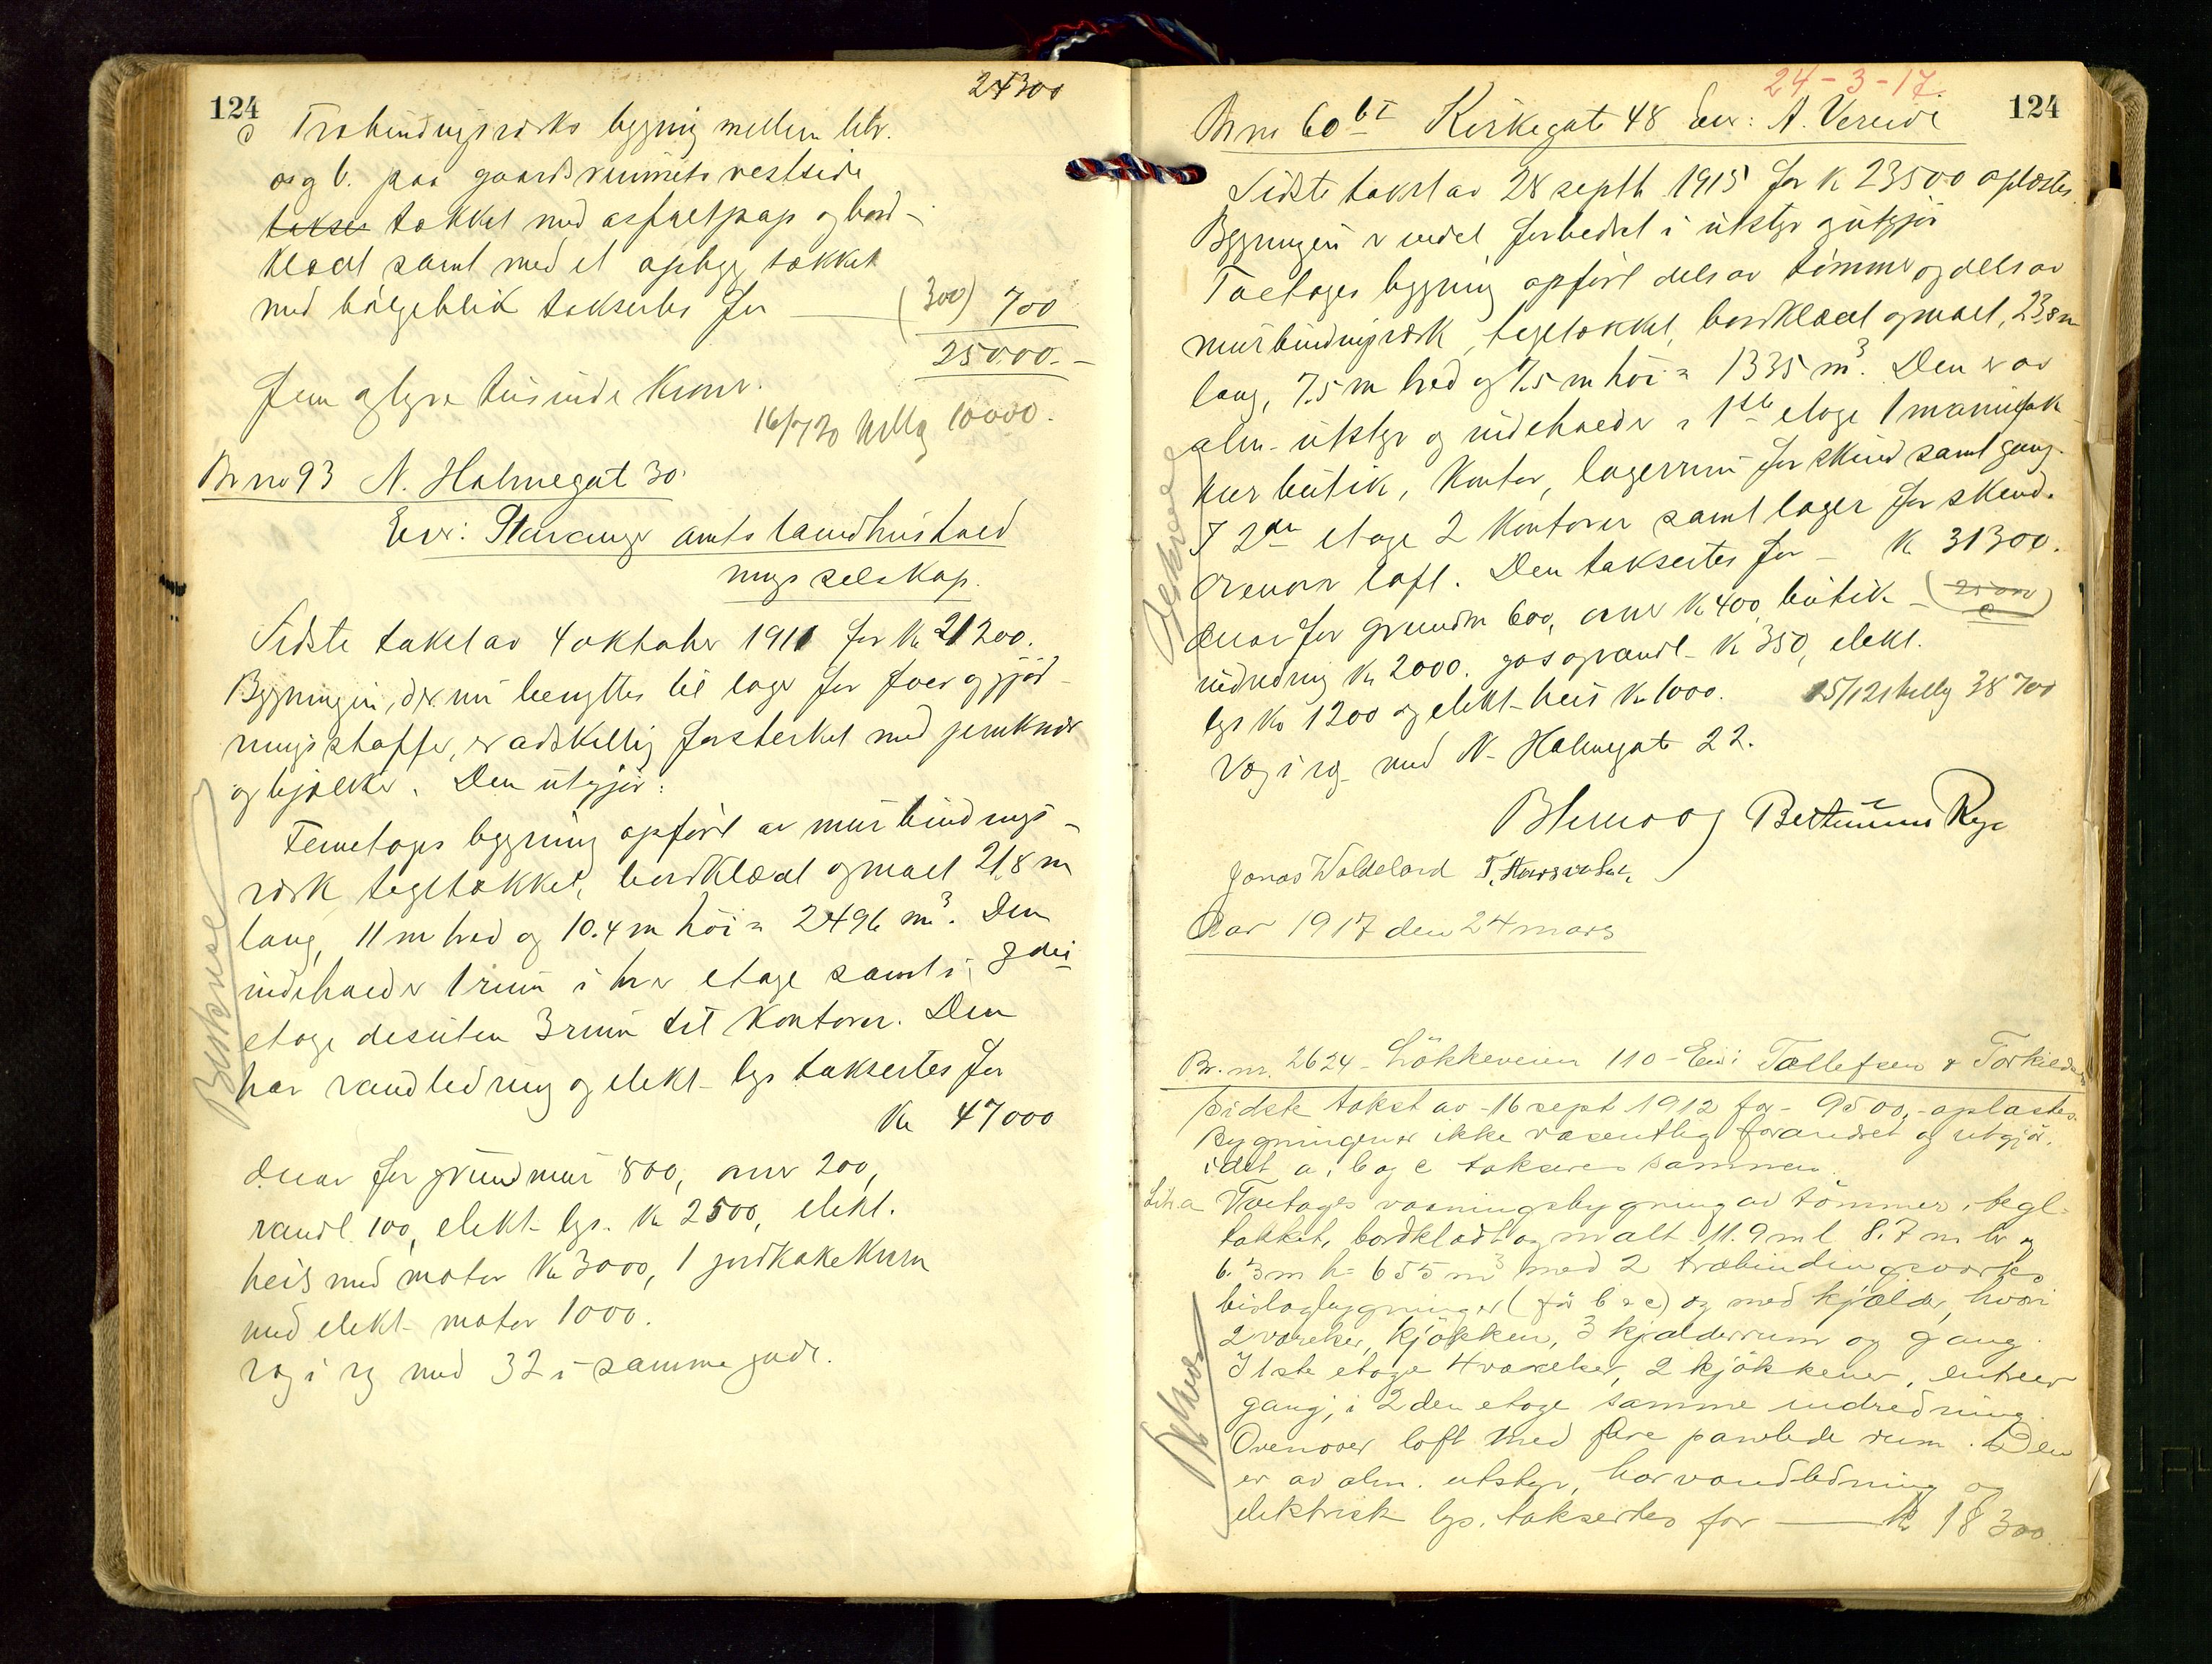 124
24300
c Træbindingsverks bygning mellem litr.
a og b. paa gaardsrummets vestside
takses tækket med asfaltpap og bord-
klædt samt med et opbyg tækket
med bølgeblik takseres for (300) 700
25000.-
Fem og tyve tusinde Kroner.
16/7 20 tillæg 10000.
Br no 93 N. Holmegat 30.
Eier: Stavanger amts landhushold
nings selskap.
Sidste takst av 4 oktober 1911 for Kr 21200.
Bygningen, der nu benyttes til lager for foer og gjød-
ningsstoffer, er adskillig forsterket med jernknær
og bjælker. Den utgjør:
Femetages bygning opført av mur bindings-
verk tegltækket, bordklædt og malt 21,8 m
lang, 11 m bred og 10.4 m høi = 2496 m³. Den
indeholder 1 rum i hver etage samt i 2den
etage desuten 3 rum til Kontorer. Den
har vandledning og elekt. lys takseres for
Kr 47000
Herav for grundmur 800, arner 200,
vandl. 100, elekt. lys. Kr 2500, elekt.
heis med motor Kr 3000, 1 jordkakekværn
med elekt. motor 1000.
væg i væg med 32 i samme gade.
Beskreves
24-3-17.
124
Br no 60 bI Kirkegate 48 Eier: A. Vereide
Sidste takst av 28 septb. 1915 for K 23500 oplæstes.
Bygningen er endel forbedret i utstyr og utgjør
Toetages bygning opført dels av tømmer og dels av
murbindingsverk, tegltækket, bordklædt og malt, 23,8 m
lang, 7.5 m bred og 7.5 m høi = 1335 m³. Den er av
alm. utstyr og indeholder i 1ste etage 1 manufak-
tur butik, Kontor, lagerrum for skind samt gang.
I 2den etage 2 Kontorer samt lager for skind.
Ovenover loft. Den takseres for - K 31300.
Herav for grundm 600, arner Kr 400, butik-
indredning Kr 2000. gas og vandl. K 350, elekt.
lys Kr 1200 og elekt. heis Kr 1000. 15/1 21 tillæg 38700
Væg i væg med N. Holmegate 22.
Beskreves
Jonas Waldeland
Aar 1917 den 24 mars
Br. nr. 2624 - Løkkeveien 110 - Eier: Tollefsen & Torkilds
Sidste takst av 16 sept 1912 for - 9500,- oplæstes.
Bygningen er ikke væsentlig forandret og utgjør,
idet a, b og c takseres sammen.
Litr a Toetages vaaningsbygning av tømmer, tegl-
tækket, bordklædt og malt 11.9 m l. 8.7 m br og
6.3 m h = 655 m³ med 2 træbindingsverks
bislagbygninger (før b & c) og med kjælder, hvori
2 værelser, kjøkken, 3 kjælderrum og gang.
I 1ste etage 4 værelser, 2 kjøkkener, entreer
gang, i 2den etage samme indredning.
Ovenover loft med flere panelede rum. Den
er av alm. utstyr, har vandledning og
elektrisk lys. takseres for Kr 18300.